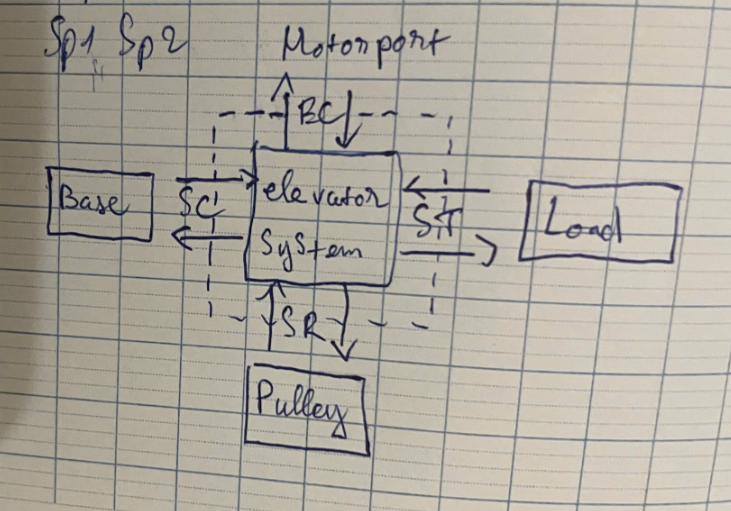 Sp1 Sp2 Motorport
BC
Base
SC
elevator
system
ST
Load
SR
Pulley